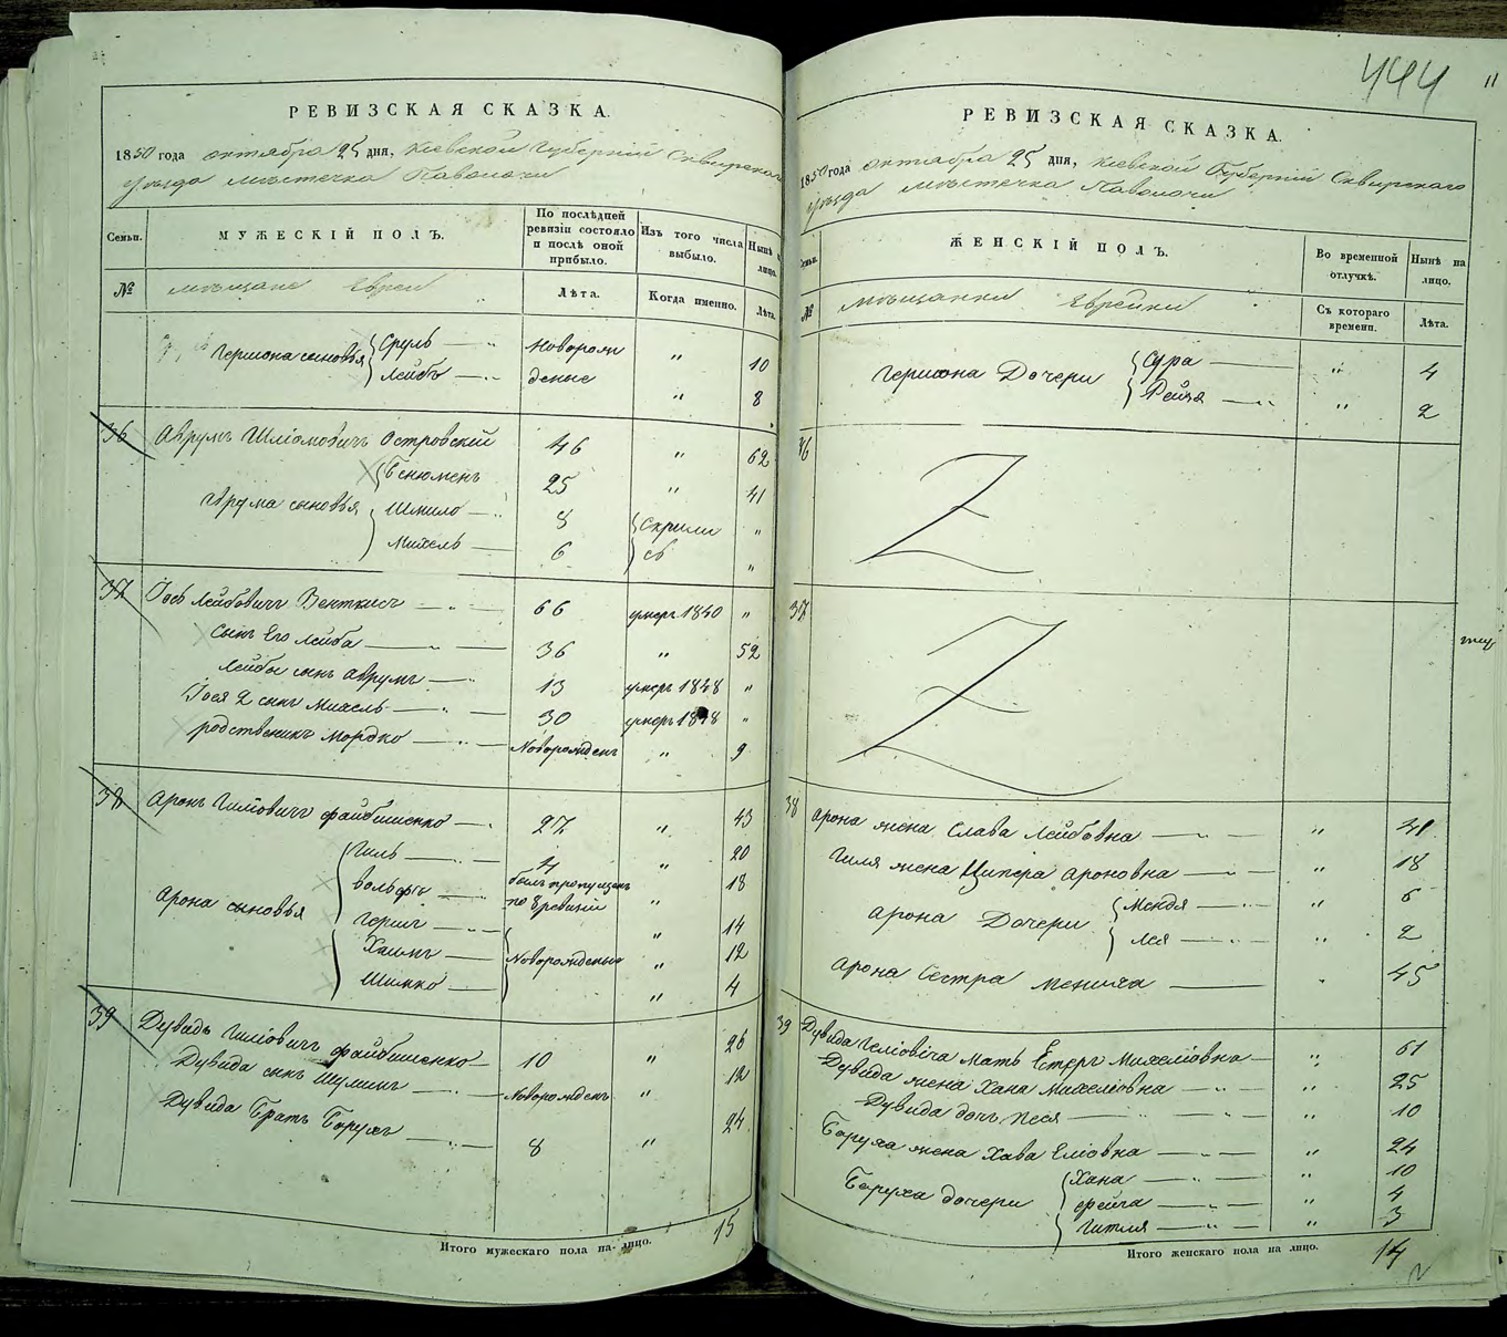 РЕВИЗСКАЯ СКАЗКА.
1850 года октября 25 дня, Киевской Губерніи Сквирскаго
уѣзда мѣстечка Паволочи
Семьи.
МУЖЕСКІЙ ПОЛЪ.
По послѣдней ревизіи состояло и послѣ оной прибыло.
Изъ того числа выбыло.
Нынѣ на лицо.
№
мѣщане Евреи
Лѣта.
Когда именно.
Лѣта.
Гершона сыновья Сруль — " Новорож " 10
Лейбъ — " деные " 8
36 Аврумъ Шліомовичъ Островскій 46 " 62
Бенюменъ 25 " 41
Аврума сыновья Шмило — " 8 Скрыли "
Михель — 6 сь "
37 Іось Лейбовичъ Венткисъ — " — 66 умеръ 1840 "
Сынъ Его Лейба — " — 36 " 52
Лейбы сынъ Аврумъ — " 13 умеръ 1848 "
Іося 2 сынъ Михель — " — 30 умеръ 1848 "
родственикъ Мордко — " — Новорожденъ " 9
38 Аронъ Гиліовичъ Файбишенко — " 27 " 43
Гиль — " — 4 " 20
Вольфъ — " — былъ пропущенъ по 8 ревизіи " 18
Арона сыновья Гершъ — " — " 14
Хаимъ — Новорожденые " 12
Шимко — " 4
39 Дувидъ Гиліовичъ Файбишенко — 10 " 26
Дувида сынъ Шулимъ — " — Новорожденъ " 12
Дувида Братъ Борухъ — " — 8 " 24
Итого мужескаго пола на-лицо. 15
444
11
РЕВИЗСКАЯ СКАЗКА.
1850 года октября 25 дня, Киевской Губерніи Сквирскаго
уѣзда мѣстечка Паволочи
Семьи.
ЖЕНСКІЙ ПОЛЪ.
Во временной отлучкѣ.
Нынѣ на лицо.
№
мѣщанки Еврейки
Съ котораго времени.
Лѣта.
Гершона Дочери Сура — " 4
Рейзя — " " 2
36
37
38 Арона жена Слава Лейбовна — " — " 41
Гиля жена Ципера Ароновна — " — " 18
Арона Дочери Мендя — " — " 6
Лея — " — " 2
Арона Сестра Мениха — " 45
39 Дувида Геліовіча Мать Естеръ Михеліовна — " 61
Дувида жена Хана Михеліовна — " — " 25
Дувида дочь Песя — " — " — " 10
Боруха жена Хава Еліовна — " — " 24
Боруха дочери Хана — " — " 10
Фейга — " — " 4
Гитля — " — " 3
Итого женскаго пола на лицо. 14